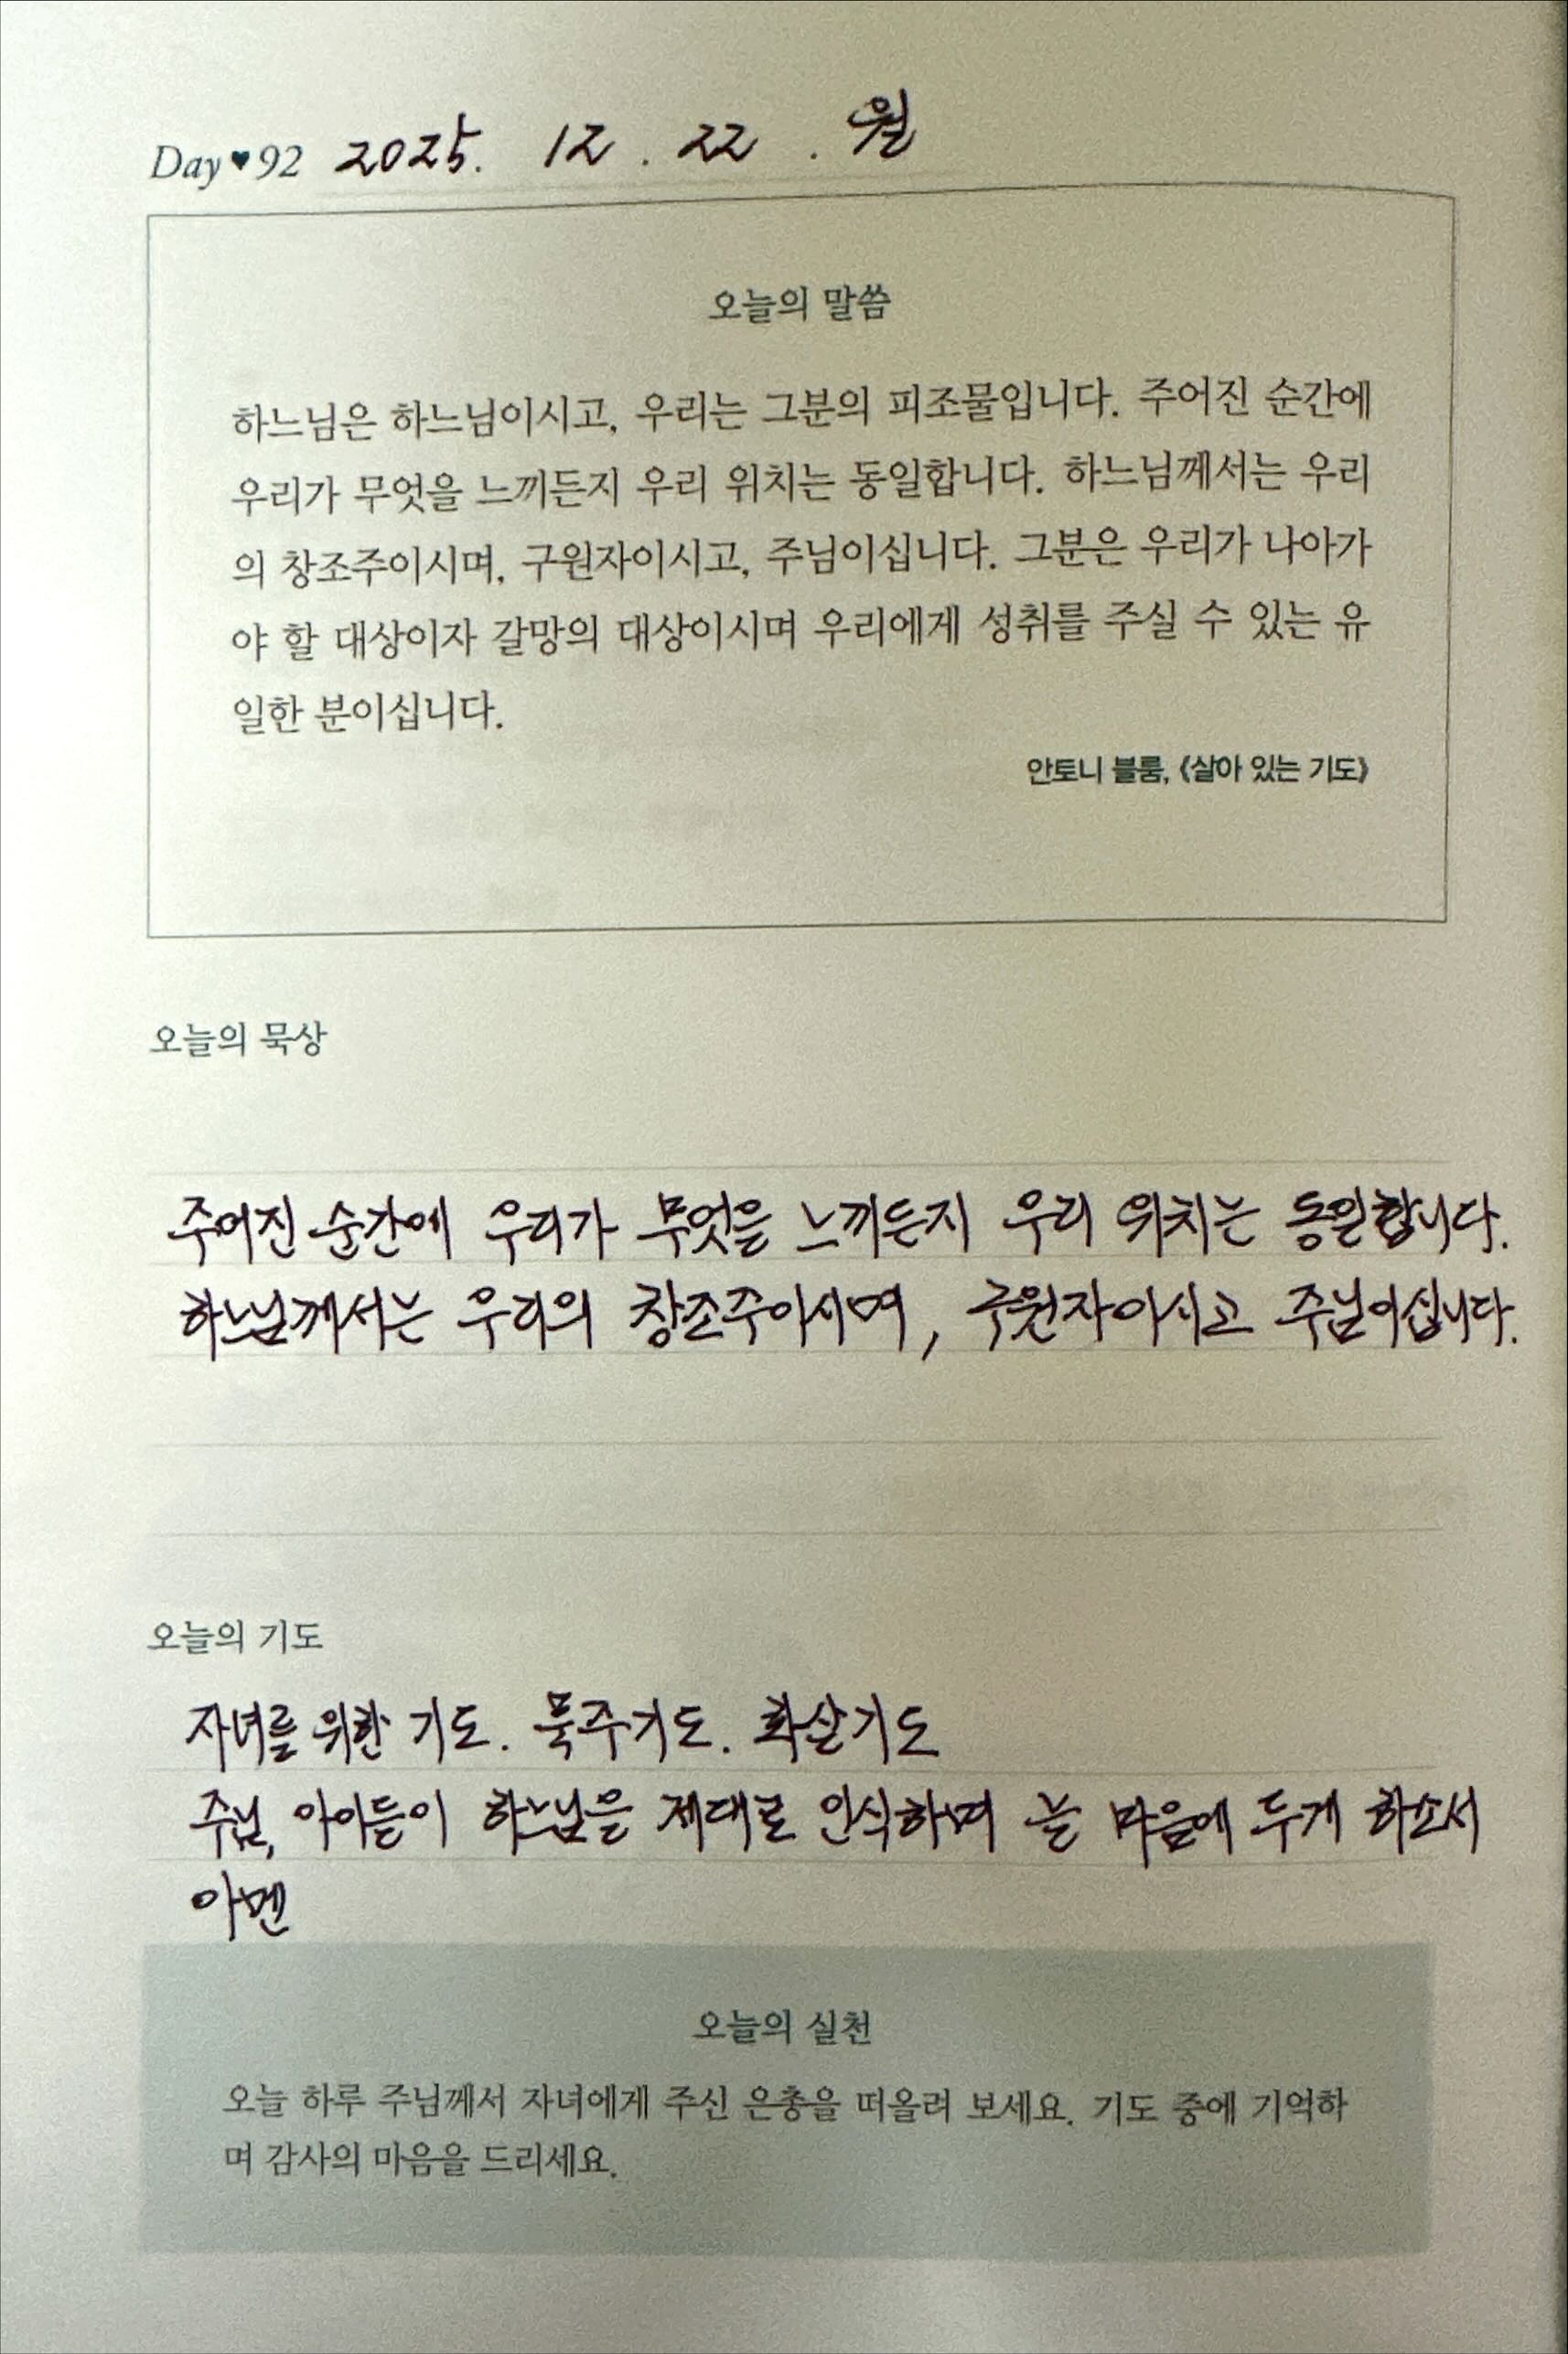 Day♥92 2025. 12. 22. 월
오늘의 말씀
하느님은 하느님이시고, 우리는 그분의 피조물입니다. 주어진 순간에
우리가 무엇을 느끼든지 우리 위치는 동일합니다. 하느님께서는 우리
의 창조주이시며, 구원자이시고, 주님이십니다. 그분은 우리가 나아가
야 할 대상이자 갈망의 대상이시며 우리에게 성취를 주실 수 있는 유
일한 분이십니다.
안토니 블룸, 《살아 있는 기도》
오늘의 묵상
주어진 순간에 우리가 무엇을 느끼든지 우리 위치는 동일합니다.
하느님께서는 우리의 창조주이시며, 구원자이시고 주님이십니다.
오늘의 기도
자녀를 위한 기도. 묵주기도. 화살기도
주님, 아이들이 하느님을 제대로 인식하며 늘 마음에 두게 하소서
아멘
오늘의 실천
오늘 하루 주님께서 자녀에게 주신 은총을 떠올려 보세요. 기도 중에 기억하
며 감사의 마음을 드리세요.